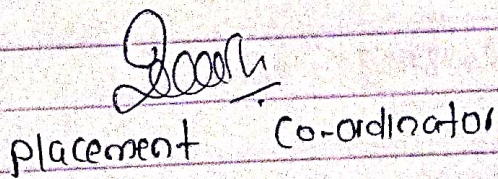 placement co-ordinator